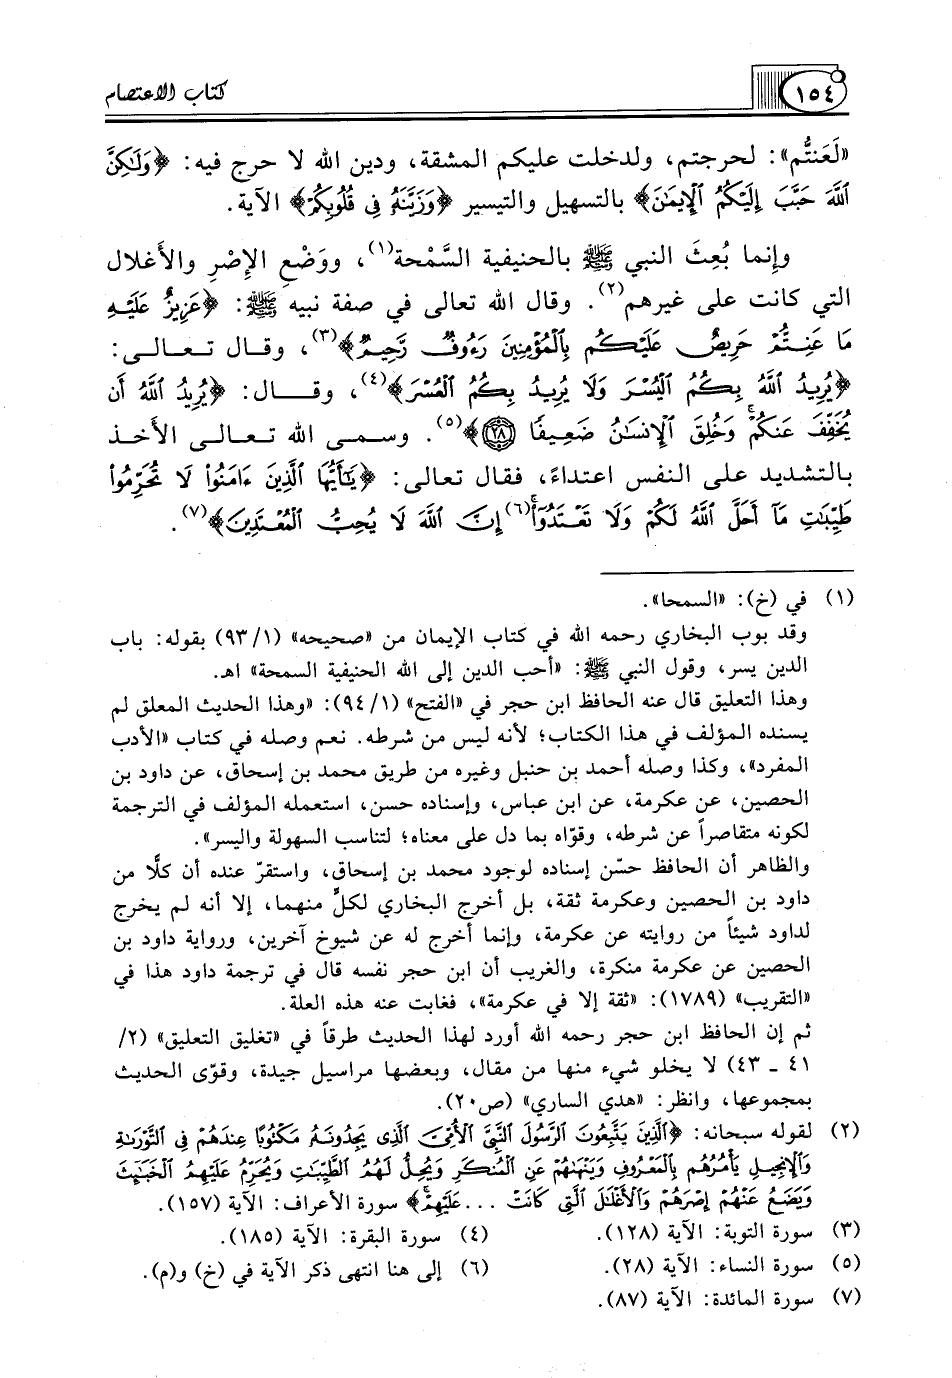 ١٥٤
كتاب الاعتصام
«لَعَنتُّم»: لحرجتم، ولدخلت عليكم المشقة، ودين الله لا حرج فيه: ﴿وَلَٰكِنَّ
ٱللَّهَ حَبَّبَ إِلَيْكُمُ ٱلْإِيمَٰنَ﴾ بالتسهيل والتيسير ﴿وَزَيَّنَهُۥ فِى قُلُوبِكُمْ﴾ الآية.
وإنما بُعِثَ النبي ﷺ بالحنيفية السَّمْحة(١)، ووَضْعِ الإِصْرِ والأغلال
التي كانت على غيرهم(٢). وقال الله تعالى في صفة نبيه ﷺ: ﴿عَزِيزٌ عَلَيْهِ
مَا عَنِتُّمْ حَرِيصٌ عَلَيْكُم بِٱلْمُؤْمِنِينَ رَءُوفٌ رَّحِيمٌ﴾(٣)، وقال تعالى:
﴿يُرِيدُ ٱللَّهُ بِكُمُ ٱلْيُسْرَ وَلَا يُرِيدُ بِكُمُ ٱلْعُسْرَ﴾(٤)، وقال: ﴿يُرِيدُ ٱللَّهُ أَن
يُخَفِّفَ عَنكُمْ ۚ وَخُلِقَ ٱلْإِنسَٰنُ ضَعِيفًا ٢٨﴾(٥). وسمى الله تعالى الأخذ
بالتشديد على النفس اعتداءً، فقال تعالى: ﴿يَٰٓأَيُّهَا ٱلَّذِينَ ءَامَنُوا۟ لَا تُحَرِّمُوا۟
طَيِّبَٰتِ مَآ أَحَلَّ ٱللَّهُ لَكُمْ وَلَا تَعْتَدُوٓا۟ ۚ(٦) إِنَّ ٱللَّهَ لَا يُحِبُّ ٱلْمُعْتَدِينَ﴾(٧).
(١) في (خ): «السمحا».
وقد بوب البخاري رحمه الله في كتاب الإيمان من «صحيحه» (١/ ٩٣) بقوله: باب
الدين يسر، وقول النبي ﷺ: «أحب الدين إلى الله الحنيفية السمحة» اهـ.
وهذا التعليق قال عنه الحافظ ابن حجر في «الفتح» (١/ ٩٤): «وهذا الحديث المعلق لم
يسنده المؤلف في هذا الكتاب؛ لأنه ليس من شرطه. نعم وصله في كتاب «الأدب
المفرد»، وكذا وصله أحمد بن حنبل وغيره من طريق محمد بن إسحاق، عن داود بن
الحصين، عن عكرمة، عن ابن عباس، وإسناده حسن، استعمله المؤلف في الترجمة
لكونه متقاصراً عن شرطه، وقوّاه بما دل على معناه؛ لتناسب السهولة واليسر».
والظاهر أن الحافظ حسّن إسناده لوجود محمد بن إسحاق، واستقرّ عنده أن كلًّا من
داود بن الحصين وعكرمة ثقة، بل أخرج البخاري لكلٍّ منهما، إلا أنه لم يخرج
لداود شيئاً من روايته عن عكرمة، وإنما أخرج له عن شيوخ آخرين، ورواية داود بن
الحصين عن عكرمة منكرة، والغريب أن ابن حجر نفسه قال في ترجمة داود هذا في
«التقريب» (١٧٨٩): «ثقة إلا في عكرمة»، فغابت عنه هذه العلة.
ثم إن الحافظ ابن حجر رحمه الله أورد لهذا الحديث طرقاً في «تغليق التعليق» (٢/
٤١ - ٤٣) لا يخلو شيء منها من مقال، وبعضها مراسيل جيدة، وقوّى الحديث
بمجموعها، وانظر: «هدي الساري» (ص٢٠).
(٢) لقوله سبحانه: ﴿ٱلَّذِينَ يَتَّبِعُونَ ٱلرَّسُولَ ٱلنَّبِىَّ ٱلْأُمِّىَّ ٱلَّذِى يَجِدُونَهُۥ مَكْتُوبًا عِندَهُمْ فِى ٱلتَّوْرَىٰةِ
وَٱلْإِنجِيلِ يَأْمُرُهُم بِٱلْمَعْرُوفِ وَيَنْهَىٰهُمْ عَنِ ٱلْمُنكَرِ وَيُحِلُّ لَهُمُ ٱلطَّيِّبَٰتِ وَيُحَرِّمُ عَلَيْهِمُ ٱلْخَبَٰٓئِثَ
وَيَضَعُ عَنْهُمْ إِصْرَهُمْ وَٱلْأَغْلَٰلَ ٱلَّتِى كَانَتْ ... عَلَيْهِمْ ۚ﴾ سورة الأعراف: الآية (١٥٧).
(٣) سورة التوبة: الآية (١٢٨). (٤) سورة البقرة: الآية (١٨٥).
(٥) سورة النساء: الآية (٢٨). (٦) إلى هنا انتهى ذكر الآية في (خ) و(م).
(٧) سورة المائدة: الآية (٨٧).